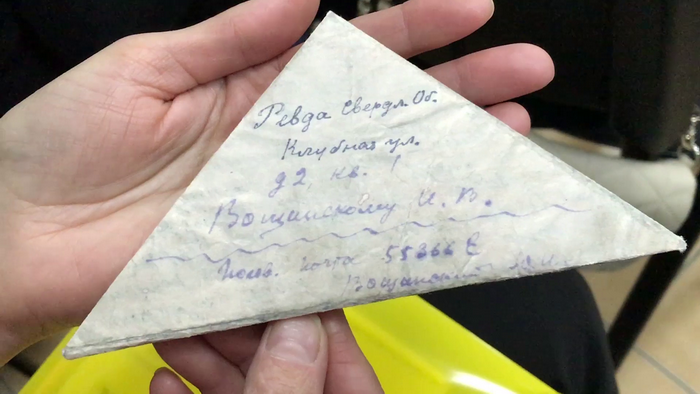 Ревда Свердл. Об.
Клубная ул.
д 2, кв. 1
Вощинскому И. В.
Полев. почта 55266 Е
Вощинский